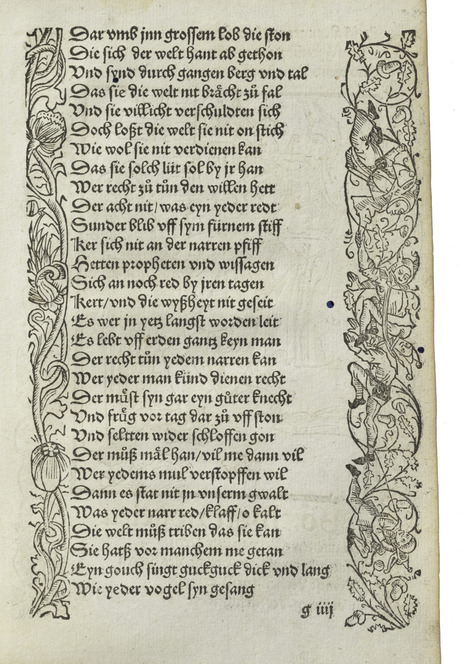 Dar vmb jnn grossem lob die ston
Die sich der welt hant ab gethon
Vnd synd durch gangen berg vnd tal
Das sie die welt nit braͤcht zů fal
Vnd sie villicht verschuldten sich
Doch loßt die welt sie nit on stich
Wie wol sie nit verdienen kan
Das sie solch lüt sol by jr han
Wer recht zů tůn den willen hett
Der acht nit / was eyn yeder redt
Sunder blib vff sym fürnem stiff
Ker sich nit an der narren pfiff
Hetten propheten vnd wissagen
Sich an noch red by jren tagen
Kert / vnd die wyßheyt nit geseit
Es wer jn yetz langst worden leit
Es lebt vff erden gantz keyn man
Der recht tůn yedem narren kan
Wer yeder man künd dienen recht
Der můst syn gar eyn gůter knecht
Vnd frůg vor tag dar zů vff ston
Vnd seltten wider schloffen gon
Der můß mål han / vil me dann vil
Wer yedems mul verstopffen wil
Dann es stat nit jn vnserm gwalt
Was yeder narr red / klaff / o kalt
Die welt můß triben das sie kan
Sie hatß vor manchem me getan
Eyn gouch singt guckguck dick vnd lang
Wie yeder vogel syn gesang
g iiij